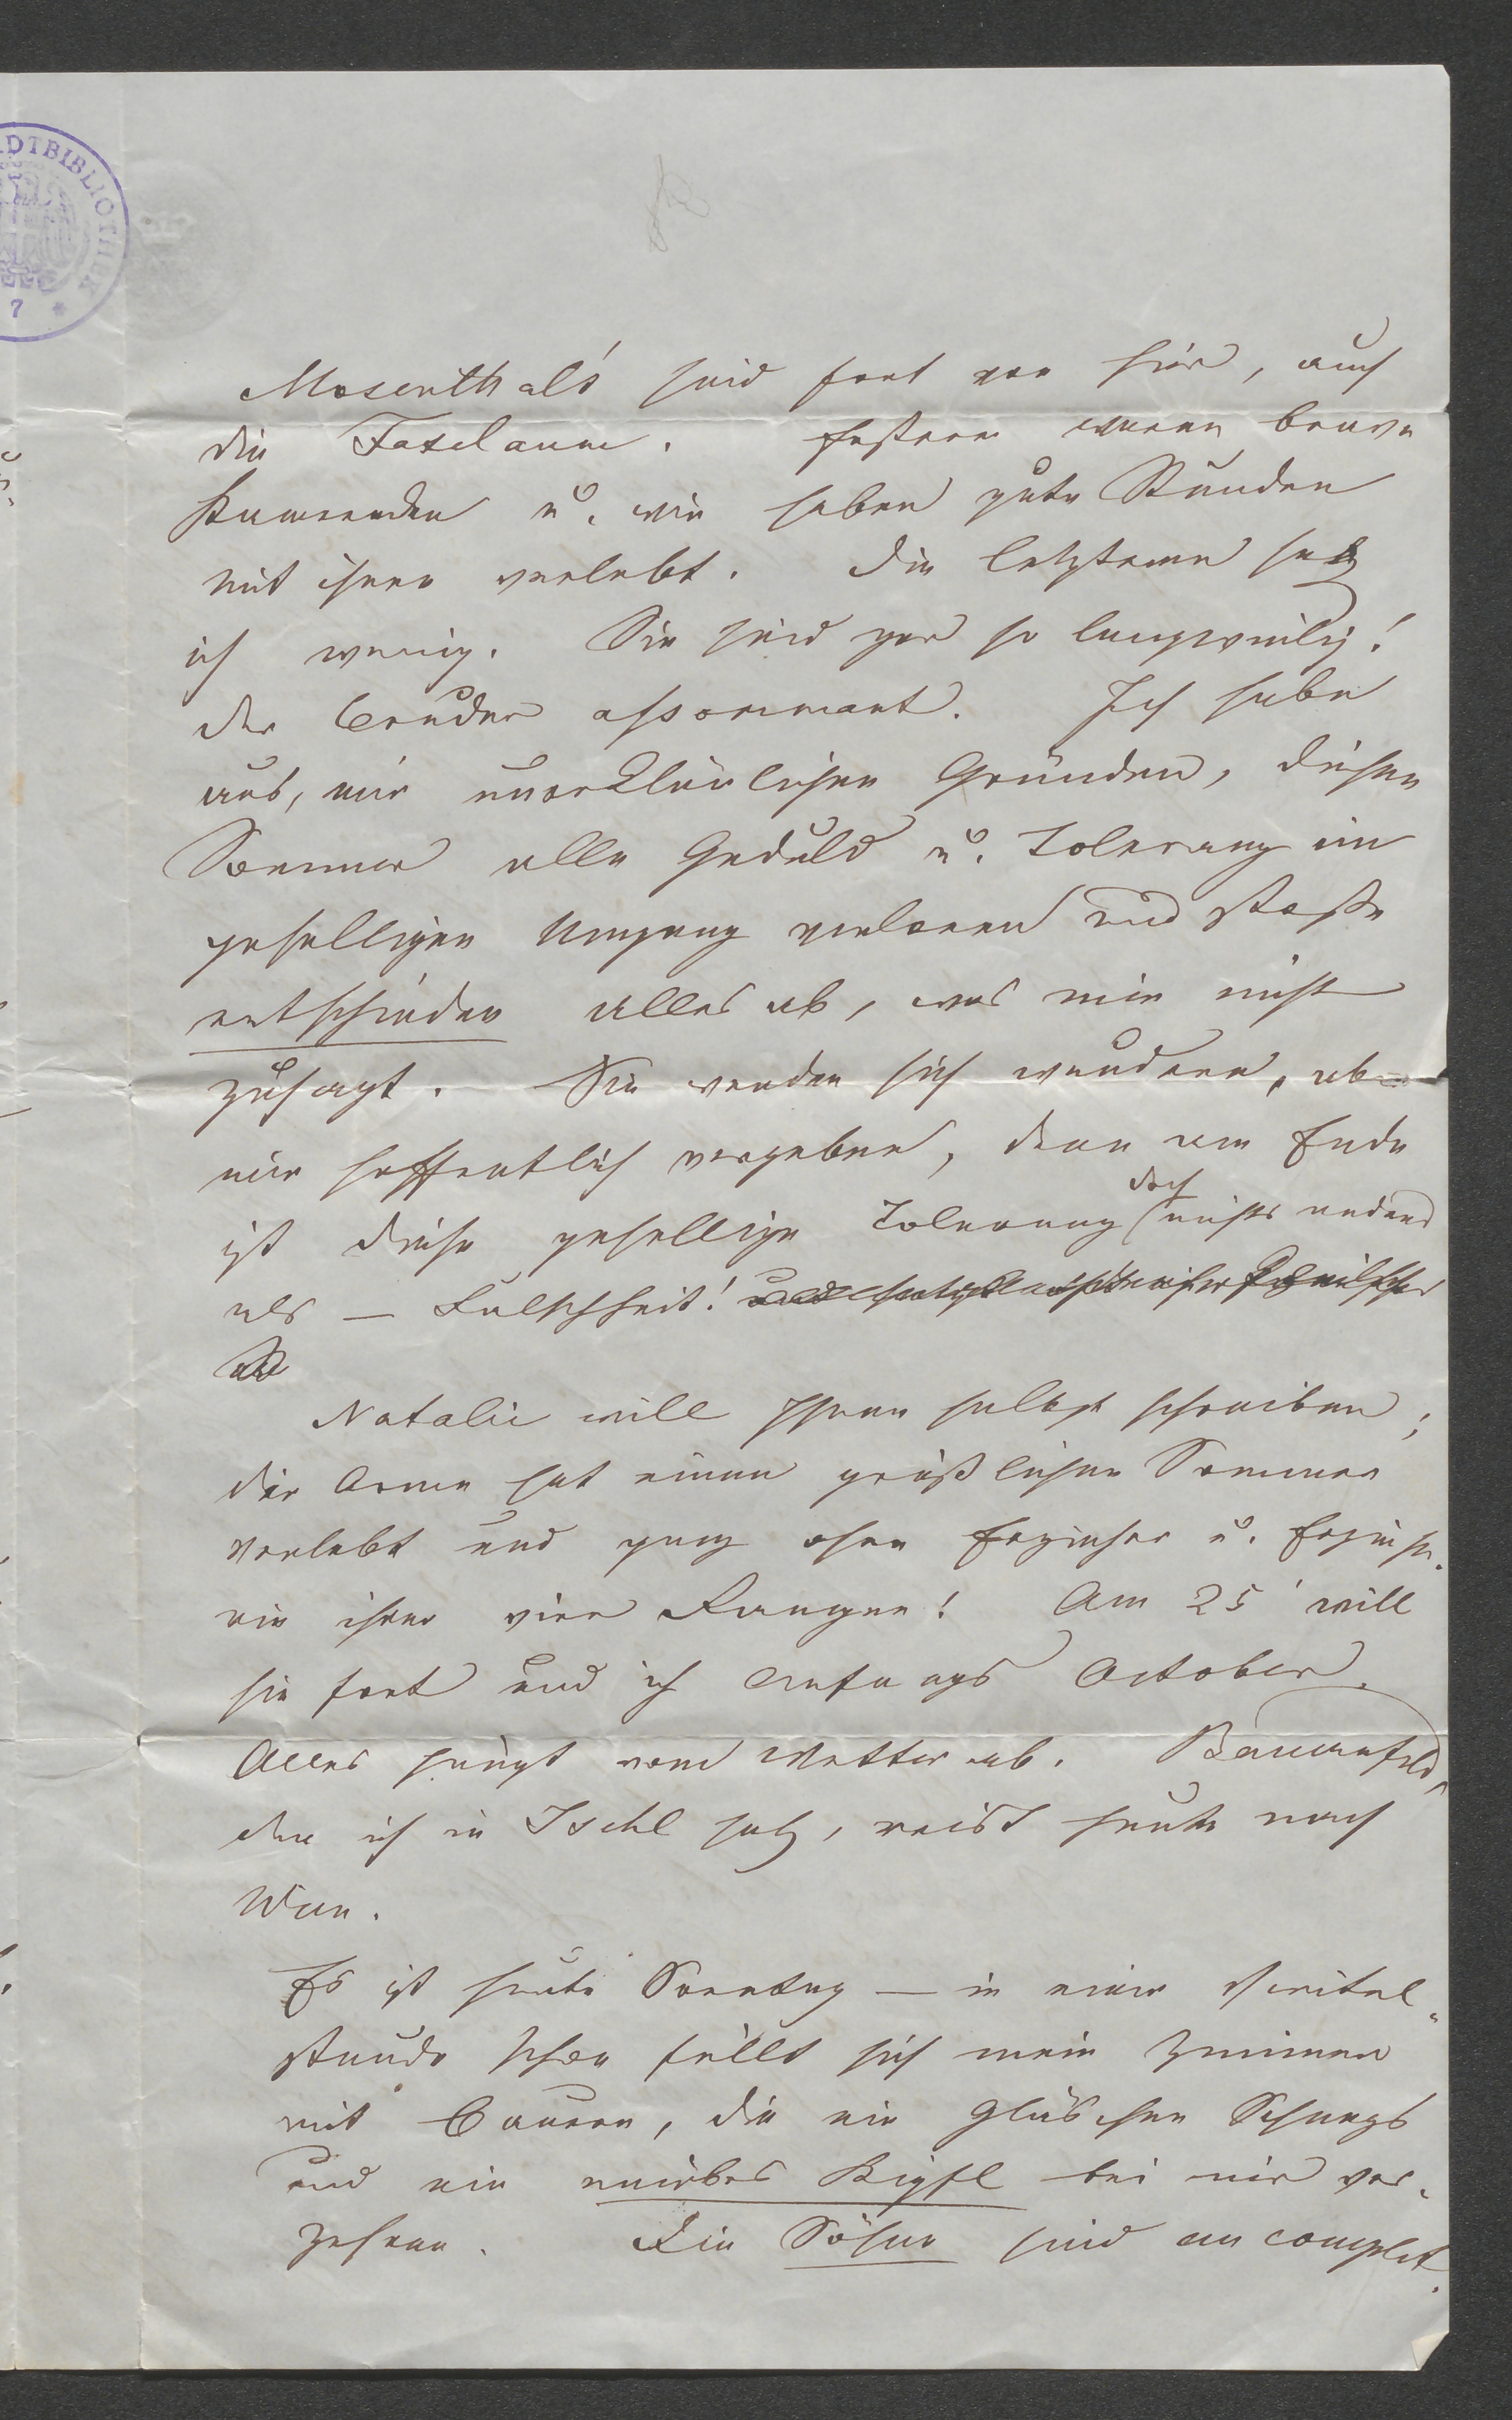 ADTBIBLIOTHEK
7 *
Mosenthals sind fort von hier, auch
die Faselaune. Erstere waren brave
Kameraden u. wir haben gute Stunden
mit ihnen verlebt. Die letzteren sah
ich wenig. Sie sind gar so langweilig!
der Bruder assommant. Ich habe
aus, mir unerklärlichen Gründen, diesen
Sommer alle Geduld u. Toleranz im
geselligen Umgang verloren und stoße
entschieden alles ab, was mir nicht
zusagt. Sie werden sich wundern, aber
mir hoffentlich vergeben, denn am Ende
ist diese gesellige Toleranz doch nichts anders
als — Falschheit!
Natalie will Ihnen selbst schreiben;
die Arme hat einen gräßlichen Sommer
verlebt und ganz ohne Erzieher u. Erziehe-
rin ihrer vier Rangen! Am 25' will
sie fort und ich Anfangs October.
Alles hängt vom Wetter ab. Bauernfeld,
den ich in Ischl sah, reist heute nach
Wien.
Es ist heute Sonntag — in einer Viertel-
stunde schon füllt sich mein Zimmer
mit Bauern, die ein Gläschen Schnaps
und ein mürbes Kipfl bei mir ver-
zehren. Die Söhne sind au complet.